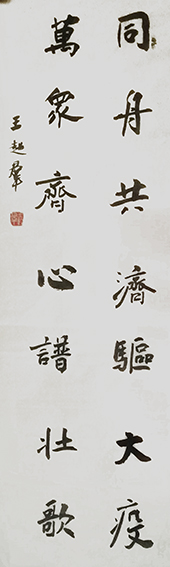 同舟共濟驅大疫
萬眾齊心譜壯歌
王超群